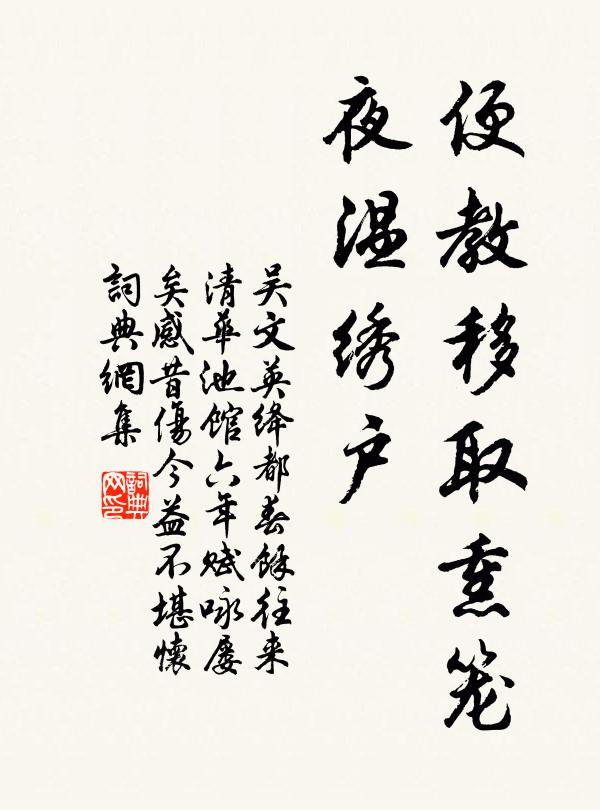 便教移取熏笼
夜温绣户
吴文英绛都春餘往来
清華池馆六年赋咏屡
矣感昔傷今益不堪懷
詞典網集
詞典
网印